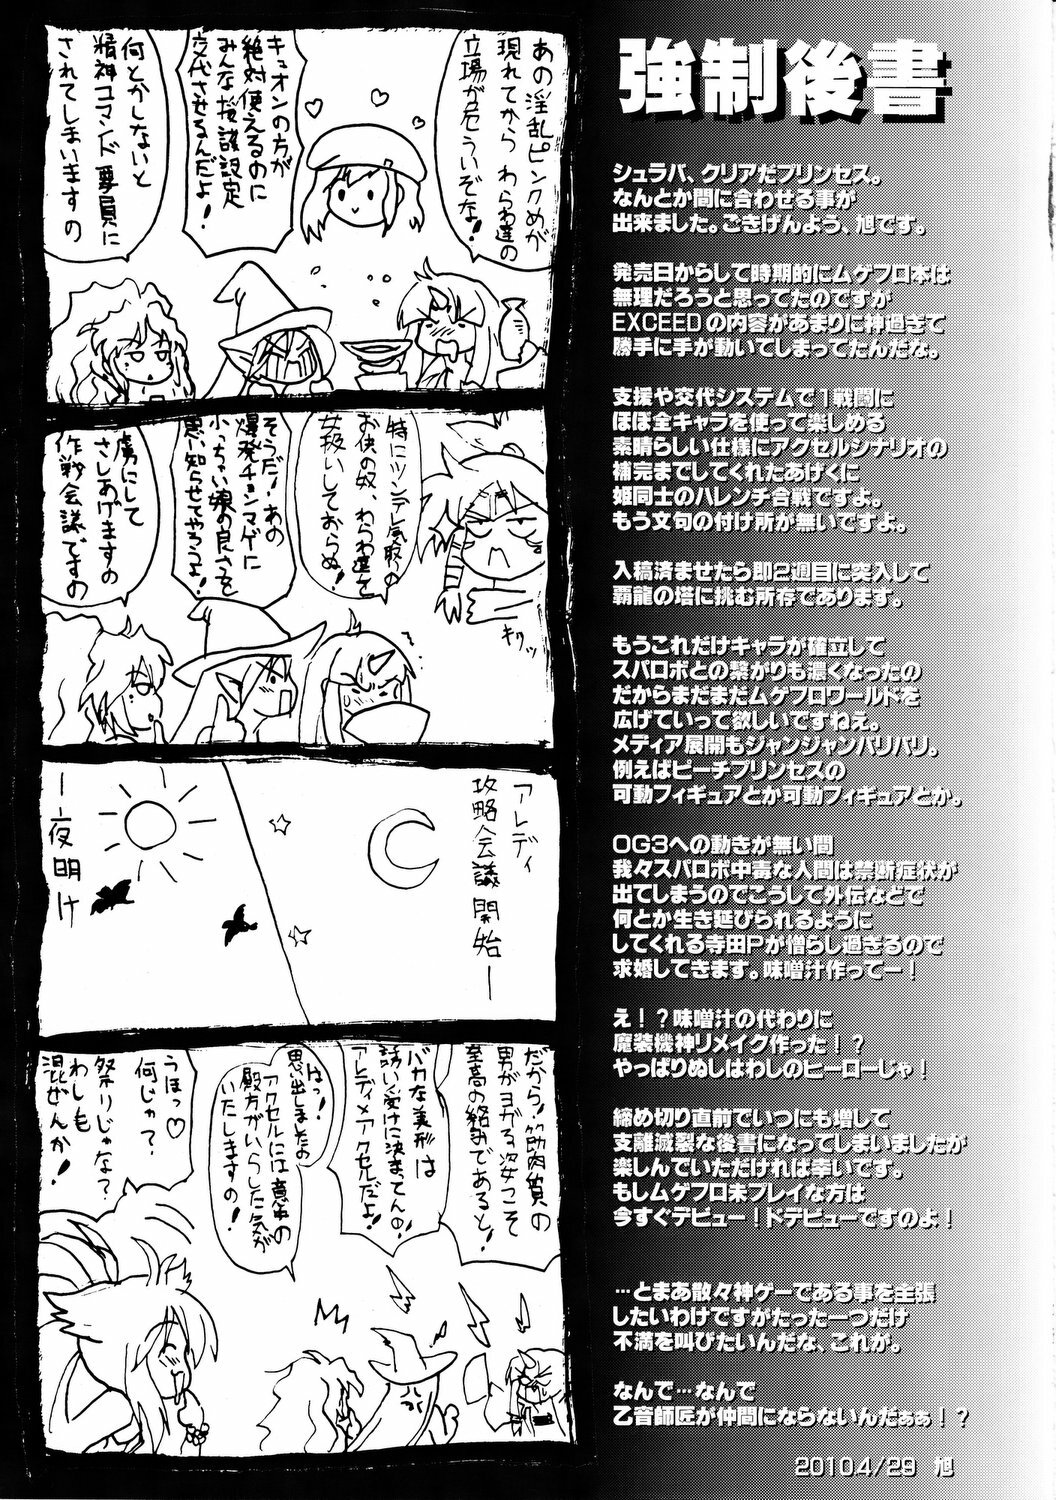 強制後書
シュラバ、クリアだプリンセス。
なんとか間に合わせる事が
出来ました。ごきげんよう、旭です。
発売日からして時期的にムゲフロ本は
無理だろうと思ってたのですが
EXCEEDの内容があまりに神過ぎて
勝手に手が動いてしまってたんだな。
支援や交代システムで1戦闘に
ほぼ全キャラを使って楽しめる
素晴らしい仕様にアクセルシナリオの
補完までしてくれたあげくに
姫同士のハレンチ合戦ですよ。
もう文句の付け所が無いですよ。
入稿済ませたら即2週目に突入して
覇龍の塔に挑む所存であります。
もうこれだけキャラが確立して
スパロボとの繋がりも濃くなったの
だからまだまだムゲフロワールドを
広げていって欲しいですねえ。
メディア展開もジャンジャンバリバリ。
例えばピーチプリンセスの
可動フィギュアとか可動フィギュアとか。
OG3への動きが無い間
我々スパロボ中毒な人間は禁断症状が
出てしまうのでこうして外伝などで
何とか生き延びられるように
してくれる寺田Pが憎らし過ぎるので
求婚してきます。味噌汁作ってー！
え！？味噌汁の代わりに
魔装機神リメイク作った！？
やっぱりぬしはわしのヒーローじゃ！
締め切り直前でいつにも増して
支離滅裂な後書になってしまいましたが
楽しんでいただければ幸いです。
もしムゲフロ未プレイな方は
今すぐデビュー！ドデビューですのよ！
…とまあ散々神ゲーである事を主張
したいわけですがたった一つだけ
不満を叫びたいんだな、これが。
なんで…なんで
乙音師匠が仲間にならないんだぁぁ！？
2010.4/29 旭
あの淫乱ピンクめが
現れてから わらわ達の
立場が危ういぞな！
キュオンの方が
絶対使えるのに
みんな援護設定
交代させるんだよ！
何とかしないと
精神コマンド要員に
されてしまいますの
特にツンデレ気取りの
お供の奴、わらわ達を
女扱いしておらぬ！
キッ
そうだ！あの
爆発チョンマゲに
小っちゃい娘の良さを
思い知らせてやろうよ！
虜にして
さしあげますの
作戦会議ですの
アレディ
攻略会議開始ー
ー夜明け
だから！筋肉質の
男がヨガる姿こそ
至高の絡みであると！
バカな美形は
誘い受けに決まってんの！
アレディ×アクセルだよ！
はっ！
思い出しましたの
アクセルには意中の
殿方がいらした気が
いたしますの！
うほっ♡
何じゃ？
祭りじゃな？
わしも
混ぜんか！